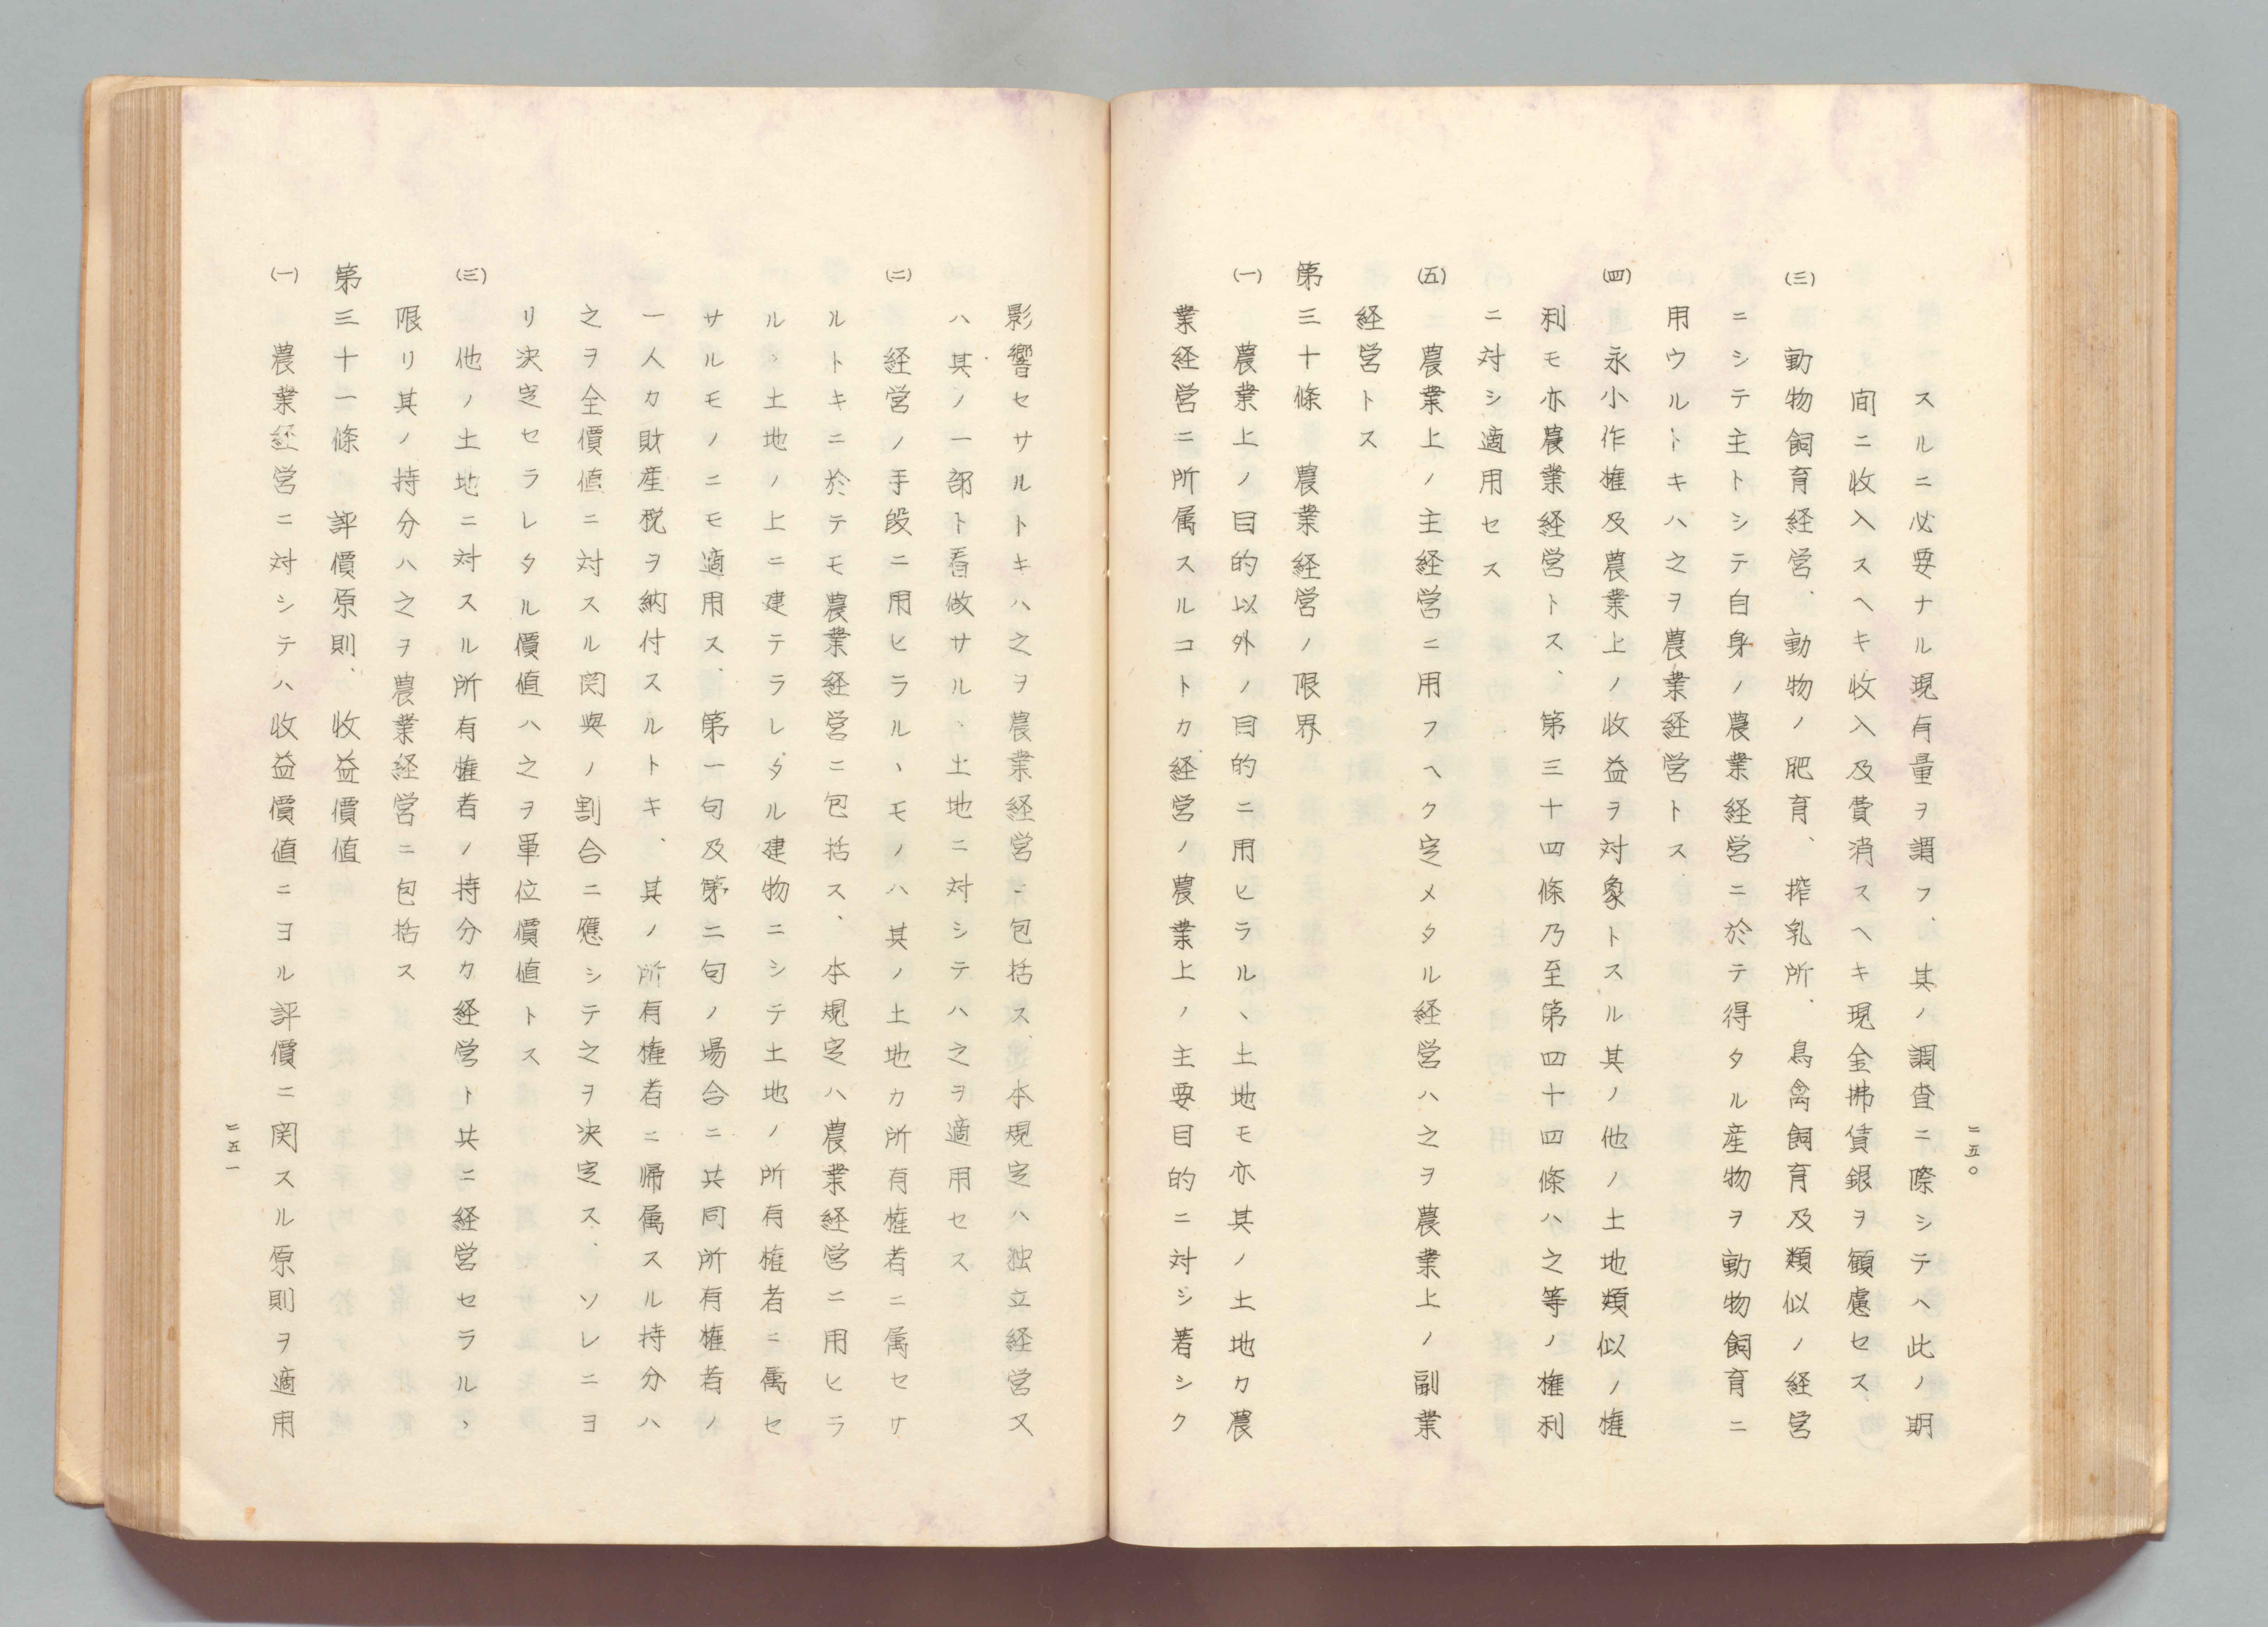 スルニ必要ナル現有量ヲ謂フ、其ノ調査ニ際シテハ此ノ期
間ニ收入スヘキ收入及費消スヘキ現金拂賃銀ヲ顧慮セス、
(三) 動物飼育経営、動物ノ肥育、搾乳所、鳥禽飼育及類似ノ経営
ニシテ主トシテ自身ノ農業経営ニ於テ得タル産物ヲ動物飼育ニ
用ウルトキハ之ヲ農業経営トス
(四) 永小作権及農業上ノ收益ヲ対象トスル其ノ他ノ土地類似ノ権
利モ亦農業経営トス、第三十四條乃至第四十四條ハ之等ノ権利
ニ対シ適用セス
(五) 農業上ノ主経営ニ用フヘク定メタル経営ハ之ヲ農業上ノ副業
経営トス
第三十條 農業経営ノ限界
(一) 農業上ノ目的以外ノ目的ニ用ヒラル、土地モ亦其ノ土地カ農
業経営ニ所属スルコトカ経営ノ農業上ノ主要目的ニ対シ著シク
二五〇
影響セサルトキハ之ヲ農業経営ニ包括ス、本規定ハ独立経営又
ハ其ノ一部ト看做サル、土地ニ対シテハ之ヲ適用セス
(二) 経営ノ手段ニ用ヒラル、モノハ其ノ土地カ所有権者ニ属セサ
ルトキニ於テモ農業経営ニ包括ス、本規定ハ農業経営ニ用ヒラ
ル、土地ノ上ニ建テラレタル建物ニシテ土地ノ所有権者ニ属セ
サルモノニモ適用ス、第一句及第二句ノ場合ニ共同所有権者ノ
一人カ財産税ヲ納付スルトキ、其ノ所有権者ニ帰属スル持分ハ
之ヲ全價値ニ対スル関與ノ割合ニ應シテ之ヲ決定ス、ソレニヨ
リ決定セラレタル價値ハ之ヲ單位價値トス
(三) 他ノ土地ニ対スル所有権者ノ持分カ経営ト共ニ経営セラル、
限リ其ノ持分ハ之ヲ農業経営ニ包括ス
第三十一條 評價原則、收益價値
(一) 農業経営ニ対シテハ收益價値ニヨル評價ニ関スル原則ヲ適用
二五一